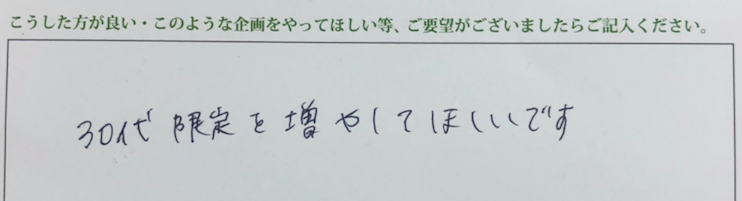 こうした方が良い・このような企画をやってほしい等、ご要望がございましたらご記入ください。
30代限定を増やしてほしいです